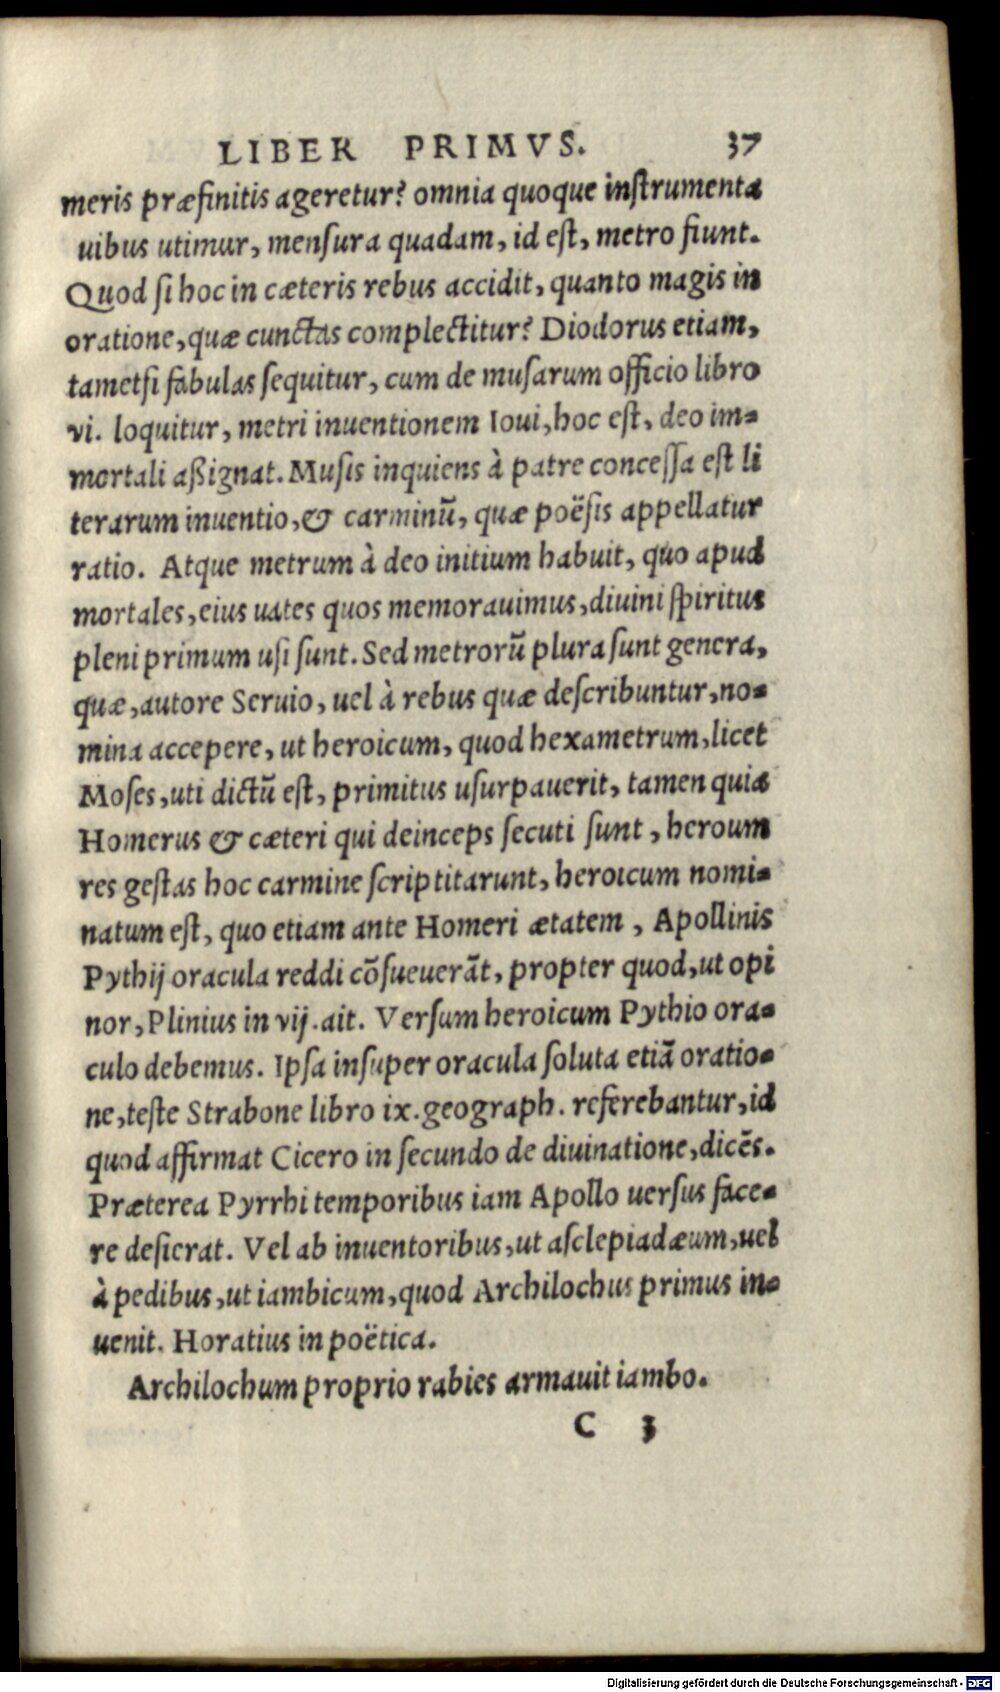 LIBER PRIMVS. 37
meris præfinitis ageretur? omnia quoque instrumenta
uibus utimur, mensura quadam, id est, metro fiunt.
Quod si hoc in cæteris rebus accidit, quanto magis in
oratione, quæ cunctas complectitur? Diodorus etiam,
tametsi fabulas sequitur, cum de musarum officio libro
vi. loquitur, metri inuentionem Ioui, hoc est, deo im-
mortali aßignat. Musis inquiens à patre concessa est li
terarum inuentio, & carminū, quæ poësis appellatur
ratio. Atque metrum à deo initium habuit, quo apud
mortales, eius uates quos memorauimus, diuini spiritus
pleni primum usi sunt. Sed metrorū plura sunt genera,
quæ, autore Seruio, uel à rebus quæ describuntur, no-
mina accepere, ut heroicum, quod hexametrum, licet
Moses, uti dictū est, primitus usurpauerit, tamen quia
Homerus & cæteri qui deinceps secuti sunt, heroum
res gestas hoc carmine scriptitarunt, heroicum nomi-
natum est, quo etiam ante Homeri ætatem, Apollinis
Pythij oracula reddi cōsueuerāt, propter quod, ut opi
nor, Plinius in vij. ait. Versum heroicum Pythio ora-
culo debemus. Ipsa insuper oracula soluta etiā oratio-
ne, teste Strabone libro ix. geograph. referebantur, id
quod affirmat Cicero in secundo de diuinatione, dicēs.
Præterea Pyrrhi temporibus iam Apollo uersus face-
re desierat. Vel ab inuentoribus, ut asclepiadæum, uel
à pedibus, ut iambicum, quod Archilochus primus in-
uenit. Horatius in poëtica.
Archilochum proprio rabies armauit iambo.
C 3
Digitalisierung gefördert durch die Deutsche Forschungsgemeinschaft - DFG